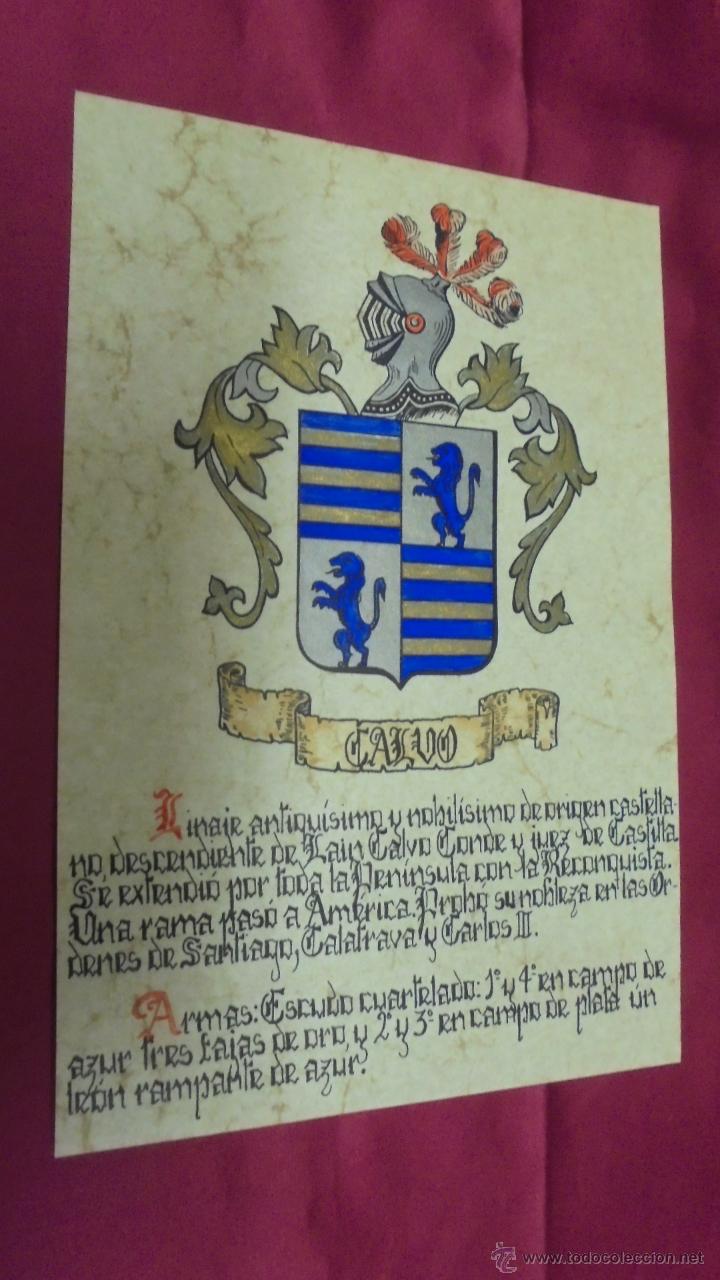 CALVO
Linaje antiquísimo y nobilísimo de origen castella-
no, descendiente de Lain Calvo Conde y juez de Castilla.
Se extendió por toda la Península con la Reconquista.
Una rama pasó a América. Probó su nobleza en las Or-
denes de Santiago, Calatrava y Carlos III.
Armas: Escudo cuartelado: 1º y 4º en campo de
azur tres fajas de oro, y 2º y 3º en campo de plata un
león rampante de azur.
www.todocoleccion.net